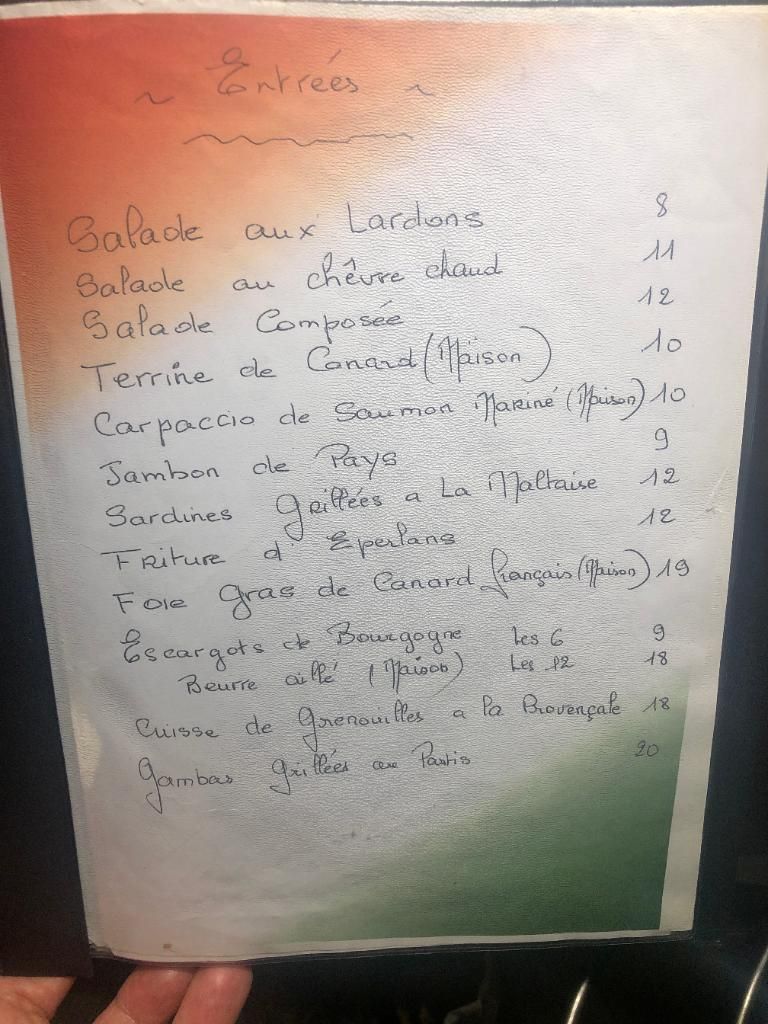 ~ Entrées ~
Salade aux Lardons 8
Salade au chêvre chaud 11
Salade Composée 12
Terrine de Canard (Maison) 10
Carpaccio de Saumon Mariné (Maison) 10
Jambon de Pays 9
Sardines Grillées a La Maltaise 12
Friture d'Eperlans 12
Foie gras de Canard français (Maison) 19
Escargots de Bourgogne Les 6 9
Beurre aillé (Maison) Les 12 18
Cuisse de Grenouilles a la Provençale 18
Gambas Grillées au Pastis 20